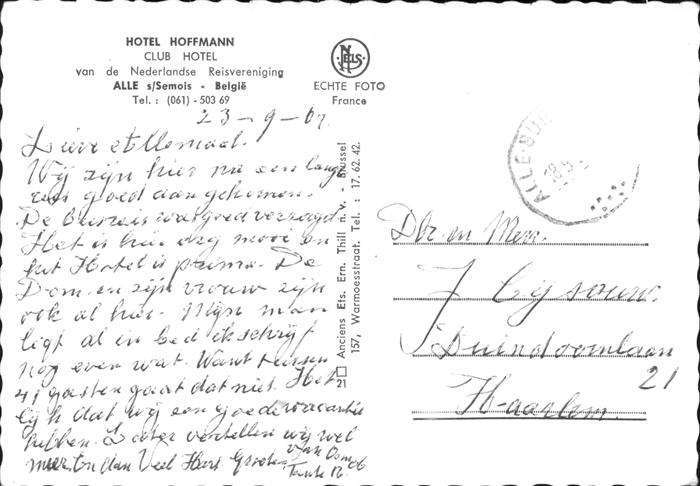 HOTEL HOFFMANN
CLUB HOTEL
van de Nederlandse Reisvereniging
ALLE s/Semois - België
Tel. : (061) - 503 69
NELS
ECHTE FOTO
France
23-9-67.
Lieve Allemaal.
Wij zijn hier na een lange
reis goed aangekomen.
De bus reis was goed verzorgd.
Het is hier erg mooi en
het Hotel is prima. De
Dom en zijn vrouw zijn
ook al hier. Mijn man
ligt al in bed ik schrijf
nog even wat. Want tussen
41 gasten gaat dat niet. Het
lijkt dat wij een goede vacantie
hebben. Later vertellen wij wel
meer. En dan Veel Hart Groeten
van Oom
Tante
Anciens Ets. Ern. Thill n. v. - Brussel
157, Warmoesstraat. Tel. : 17. 62. 42.
21
ALLE-SUR
Dhr en Mevr.
J Bijsouw.
Duindoornlaan
21
Haarlem.